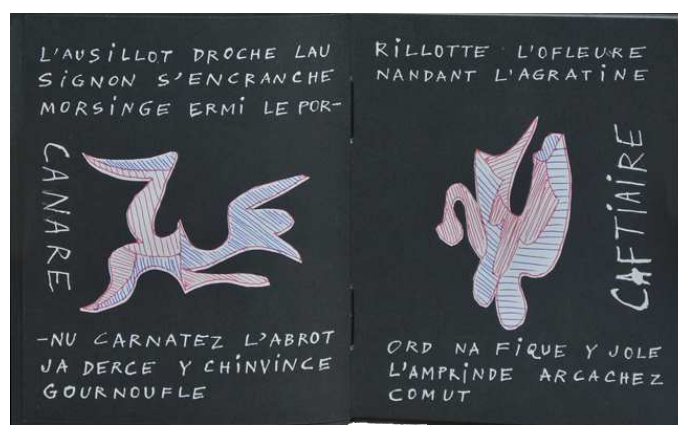 L'AUSiLLOT DROCHE LAU
SiGNON S'ENCRANCHE
MORSiNGE ERMi LE POR-
CANARE
-NU CARNATEZ L'ABROT
JA DERCE Y CHiNViNCE
GOURNOUFLE
RiLLOTTE L'OFLEURE
NANDANT L'AGRATiNE
CAFTiAiRE
ORD NA FiQUE Y JOLE
L'AMPRiNDE ARCACHEZ
COMUT